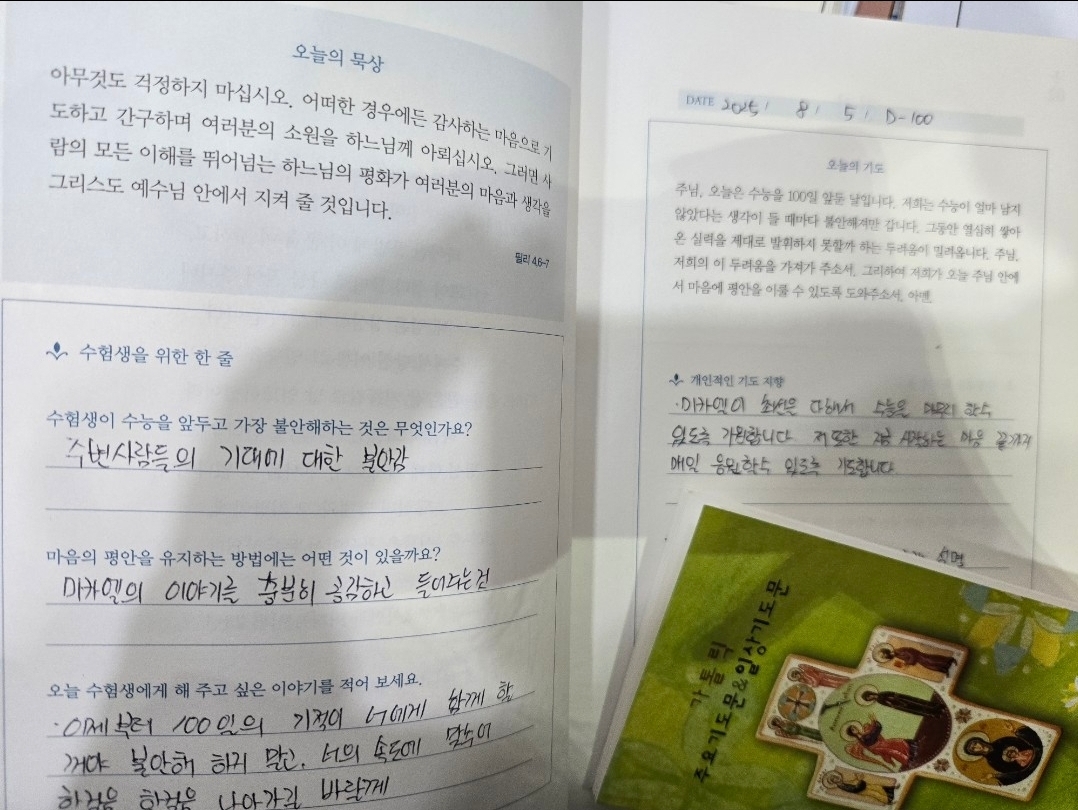 오늘의 묵상
아무것도 걱정하지 마십시오. 어떠한 경우에든 감사하는 마음으로 기
도하고 간구하며 여러분의 소원을 하느님께 아뢰십시오. 그러면 사
람의 모든 이해를 뛰어넘는 하느님의 평화가 여러분의 마음과 생각을
그리스도 예수님 안에서 지켜 줄 것입니다.
필리 4,6-7
수험생을 위한 한 줄
수험생이 수능을 앞두고 가장 불안해하는 것은 무엇인가요?
주변사람들의 기대에 대한 불안감
마음의 평안을 유지하는 방법에는 어떤 것이 있을까요?
미카엘의 이야기를 충분히 공감하고 들어주는것
오늘 수험생에게 해 주고 싶은 이야기를 적어 보세요.
·이제부터 100일의 기적이 너에게 함께 할
거야 불안해 하지 말고, 너의 속도에 맞추어
한걸음 한걸음 나아가길 바랄게
DATE 2025 / 8 / 5 / D-100
오늘의 기도
주님, 오늘은 수능을 100일 앞둔 날입니다. 저희는 수능이 얼마 남지
않았다는 생각이 들 때마다 불안해져만 갑니다. 그동안 열심히 쌓아
온 실력을 제대로 발휘하지 못할까 하는 두려움이 밀려옵니다. 주님,
저희의 이 두려움을 가져가 주소서. 그리하여 저희가 오늘 주님 안에
서 마음에 평안을 이룰 수 있도록 도와주소서. 아멘.
개인적인 기도 지향
·미카엘이 최선을 다해서 수능을 마무리 할수
있도록 기원합니다 저 또한 지금 시작하는 마음 끝까지
매일 응원할수 있도록 기도합니다
가톨릭
주요기도문&일상기도문